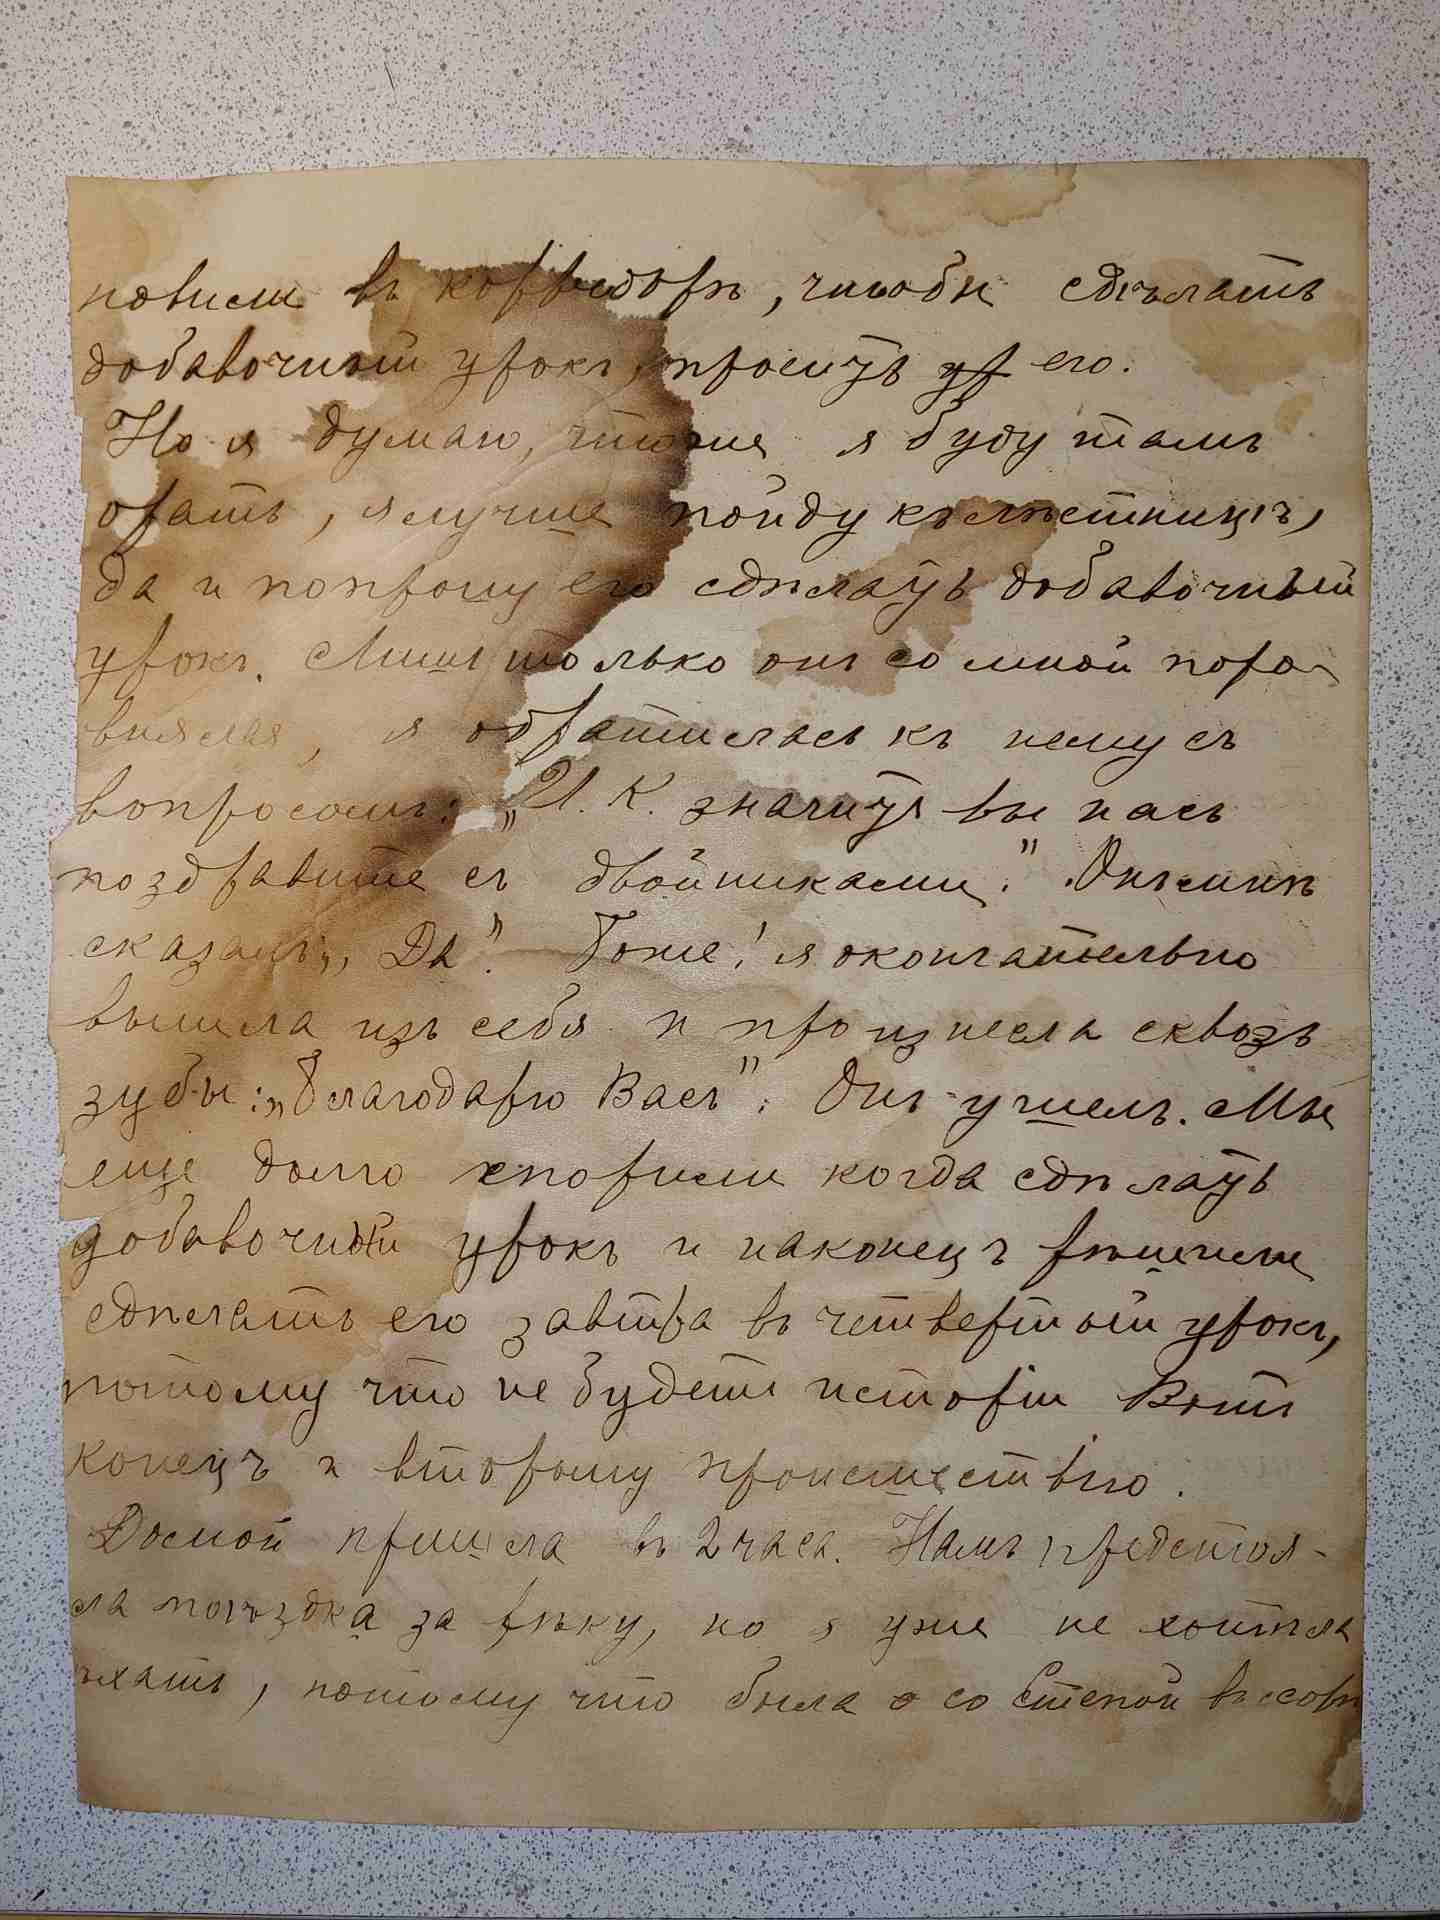 повили въ корридорѣ, чтобы сдѣлать
добавочный урокъ, просить ур его.
Но я думаю, что же я буду тамъ
орать, я лучше пойду къ лѣстницѣ,
да и попрошу его сдѣлать добавочный
урокъ. Лишь только онъ со мной поро-
внялся, я обратилась къ нему съ
вопросомъ: „И. К. значитъ вы насъ
поздравите съ двойниками." Онъ мнѣ
сказалъ: „Да". Боже! я окончательно
вышла изъ себя и произнесла сквозь
зубы: „Благодарю Васъ". Онъ ушелъ. Мы
еще долго спорили когда сдѣлать
добавочный урокъ и наконецъ рѣшили
сдѣлать его завтра въ четвертый урокъ,
потому что не будетъ исторіи Вотъ
конецъ и второму происшествію.
Домой пришла въ 2 часа. Намъ предстоя-
ла поѣздка за рѣку, но я уже не хотѣла
ѣхать, потому что была о со Степой въ ссорѣ